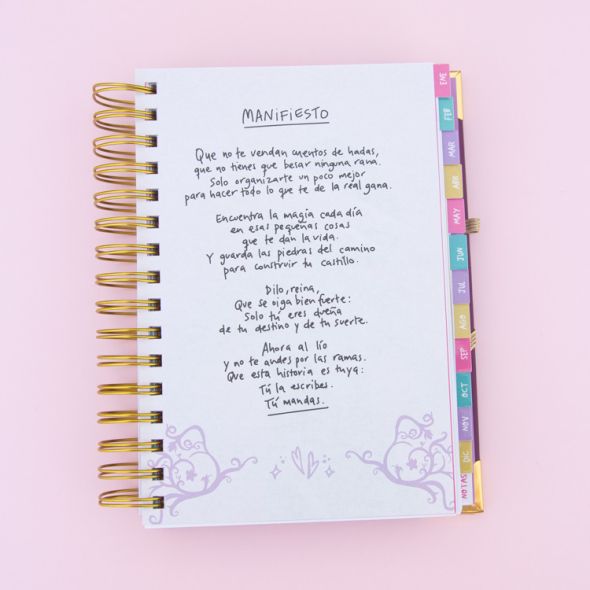 MANiFiESTO
Que no te vendan cuentos de hadas,
que no tienes que besar ninguna rana.
Solo organizarte un poco mejor
para hacer todo lo que te dé la real gana.
Encuentra la magia cada día
en esas pequeñas cosas
que te dan la vida.
Y guarda las piedras del camino
para construir tu castillo.
Dilo, reina,
Que se oiga bien fuerte:
Solo tú eres dueña
de tu destino y de tu suerte.
Ahora al lío
y no te andes por las ramas.
Que esta historia es tuya:
Tú la escribes.
Tú mandas.
ENE
FEB
MAR
ABR
MAY
JUN
JUL
AGO
SEP
OCT
NOV
DIC
NOTAS